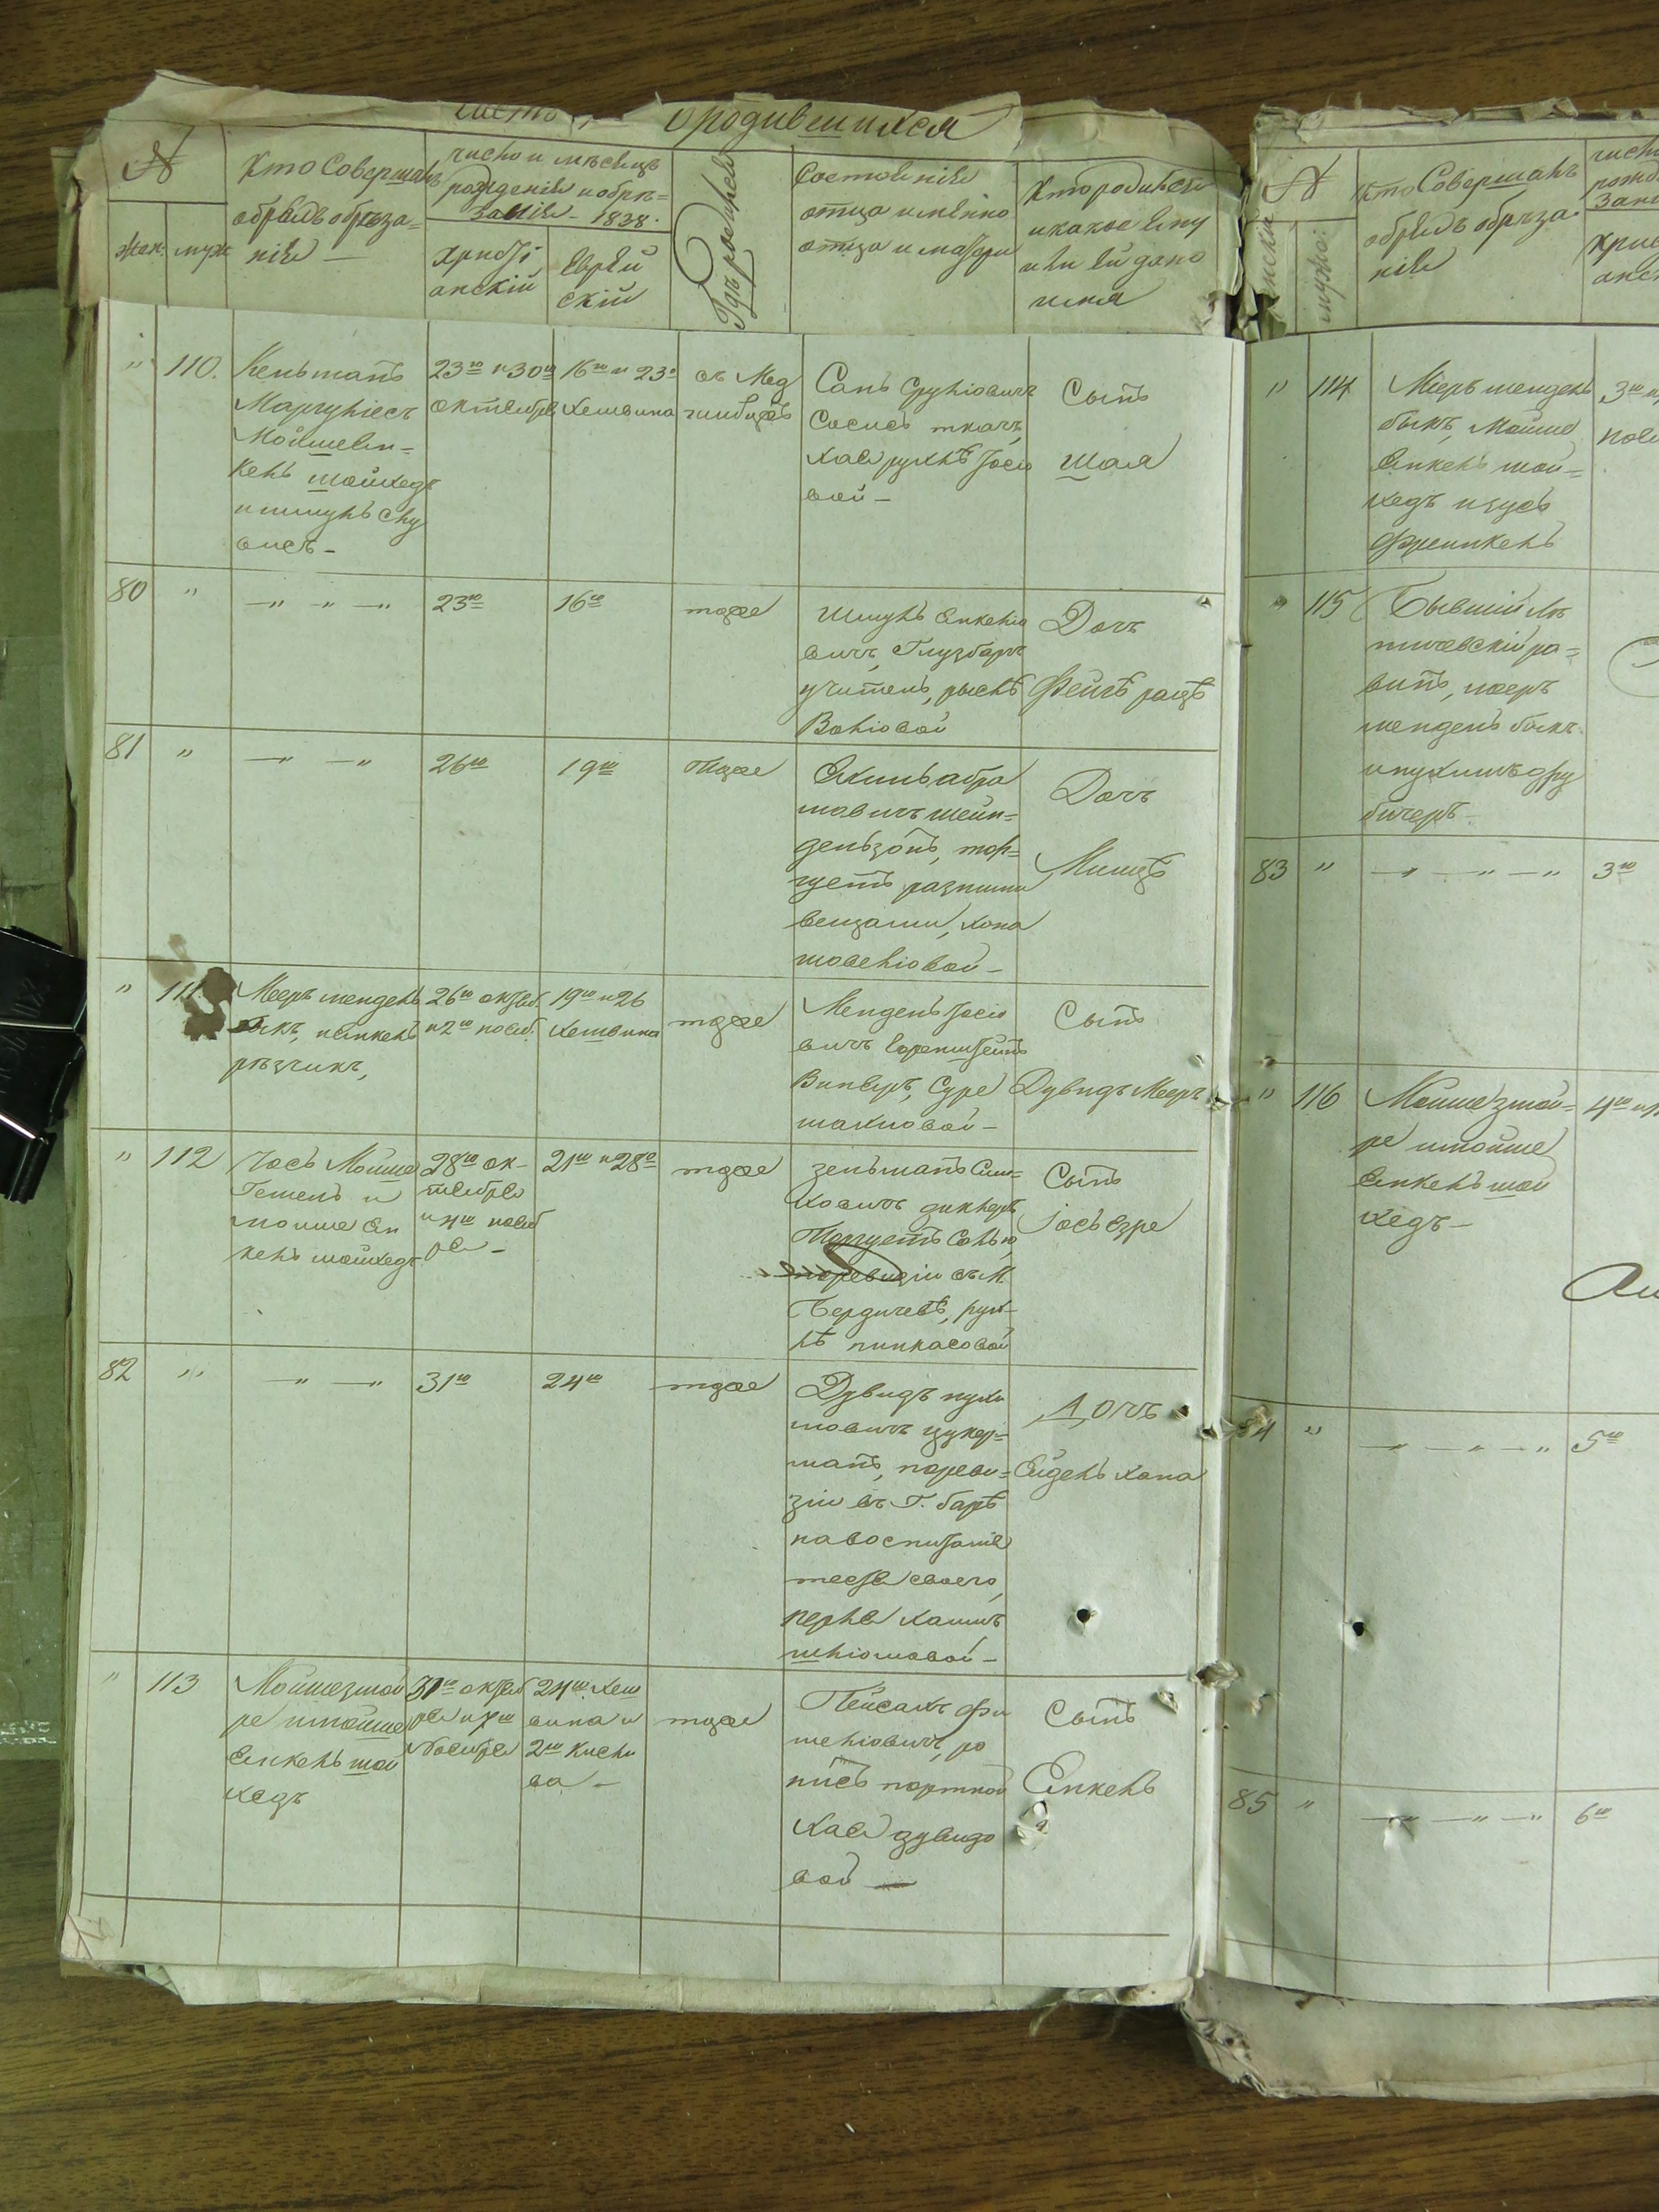 о родившихся
№
Кто Совершалъ
обрядъ обреза=
нія —
жен. муж
число и мѣсяцъ
рождения и обрѣ=
занія – 1838.
Христі
анскій
Еврей
скій
Гдѣ родился
Состояніе
отца и имяна
отца и матери
Кто родился
и какое ему
или ей дано
имя
" 110.
Кельманъ
Маргуліесъ
Мойше Ян=
кель шойхедъ
и шмуль Слу
висъ –
23го и 30го
октября
16го и 23го
Хешвина
въ Мед
жибожѣ
Сапъ Сруліовичъ
Сосисъ ткачъ,
Хая рухлѣ Іосіо
вой –
Сынъ
Шая
80 " —"—"—"
23го
16го
тоже
Шмуль Янкеліо
вичъ, Глузбаръ
учитель, рыслѣ
Воліовой
Дочъ
Фейгѣ рацѣ
81 " —"—"
26го
19го
тоже
Якимъ абра
мовичъ шейн=
дельзонъ, тор=
гуетъ разными
вещами, хана
мошеліовой –
Дочъ
Минцѣ
" 111.
Мееръ мендель
быкъ, янкель
рѣзчикъ,
26го октяб.
и 2го нояб.
19го и 26
Хешвина
тоже
Мендель Іосіо
вичъ Соренштейнъ
Винверъ, Суре
махловой –
Сынъ
Дувидъ Мееръ
" 112
Іось Мойше
Гетель и
мойше Ян
кель шойхедъ
28го ок–
тября
и 4го нояб
ря –
21го и 28го
тоже
Зельманъ Сим–
ховичъ диклеръ
Торгуетъ солью,
по ревизіи въ М.
Бердичевѣ, рух–
лѣ пинкасовой
Сынъ
Іось Езре
82 " —"—"
31го
24го
тоже
Дувидъ нухи
мовичъ цукер=
манъ, по реви=
зіи въ г. барѣ
на воспитаніе
тестя своего,
перля хаимъ
шліомовой –
Дочъ
Ейдель хана
" 113
Мойше змой
ре и мойше
Янкель шой
хедъ
31го октяб
ря и 7го
Ноября
24го Хеш
вина и
2го Кисли
ва –
тоже
Пейсахъ Фи
шеліовичъ, ро
нисъ портной
Хая дувидо
вой —
Сынъ
Янкель
№
мужес.
кто Совершалъ
обрядъ обрѣза=
нія
" 114
Меерь мендель
быкъ, мойше
Янкель шой=
хедъ и зусь
Френкель
3го
" 115
Бывшій Ле
тичевскій ра=
винъ, мееръ
мендель быкъ
и нухимъ дру
бичеръ –
83 " —"—"—"
3го
" 116
Мойше змой=
ре и мойше
Янкель шой
хедъ –
4го
84 " —"—"—"
5го
85 " —"—"—"
6го